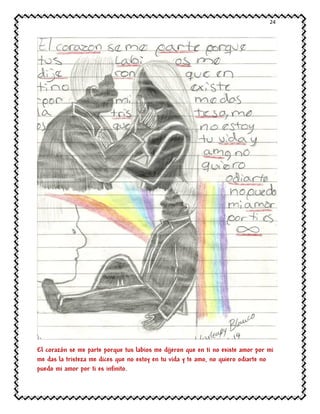 24
El corazon se me parte porque
tus labi os me
dije ron que en
ti no existe amor
por mi, me das
la tris teza, me
que no estoy
tu vida y
amo, no
quiero
odiarte
no puedo
mi amor
por ti es
∞
Blanco
19
El corazón se me parte porque tus labios me dijeron que en ti no existe amor por mi
me das la tristeza me dices que no estoy en tu vida y te amo, no quiero odiarte no
puedo mi amor por ti es infinito.